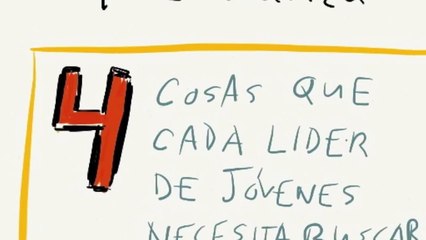 4 COSAS QUE
CADA LIDER
DE JÓVENES
NECESITA BUSCAR